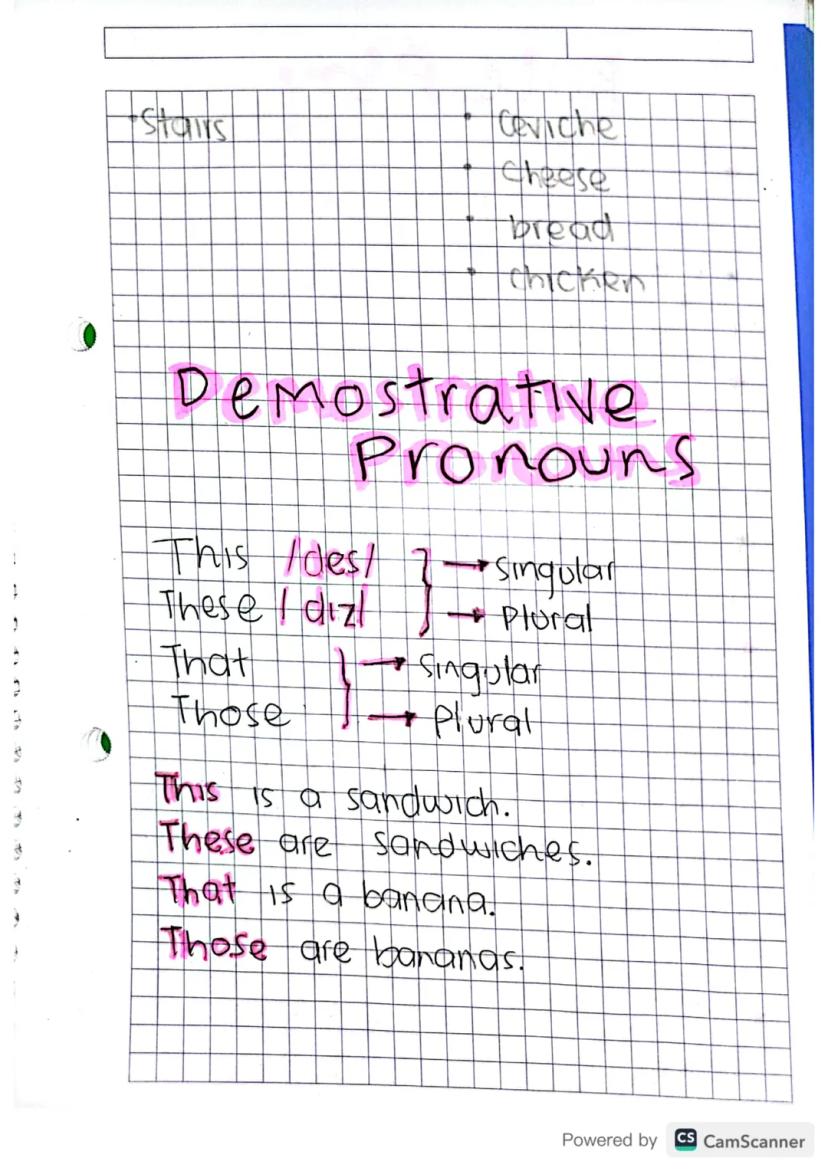 • Stairs
• Ceviche
• cheese
• bread
• chicken
Demostrative
Pronouns
This /des/ } → Singular
These /diz/ } → Plural
That } → Singular
Those } → Plural
This is a sandwich.
These are sandwiches.
That is a banana.
Those are bananas.
Powered by CS CamScanner